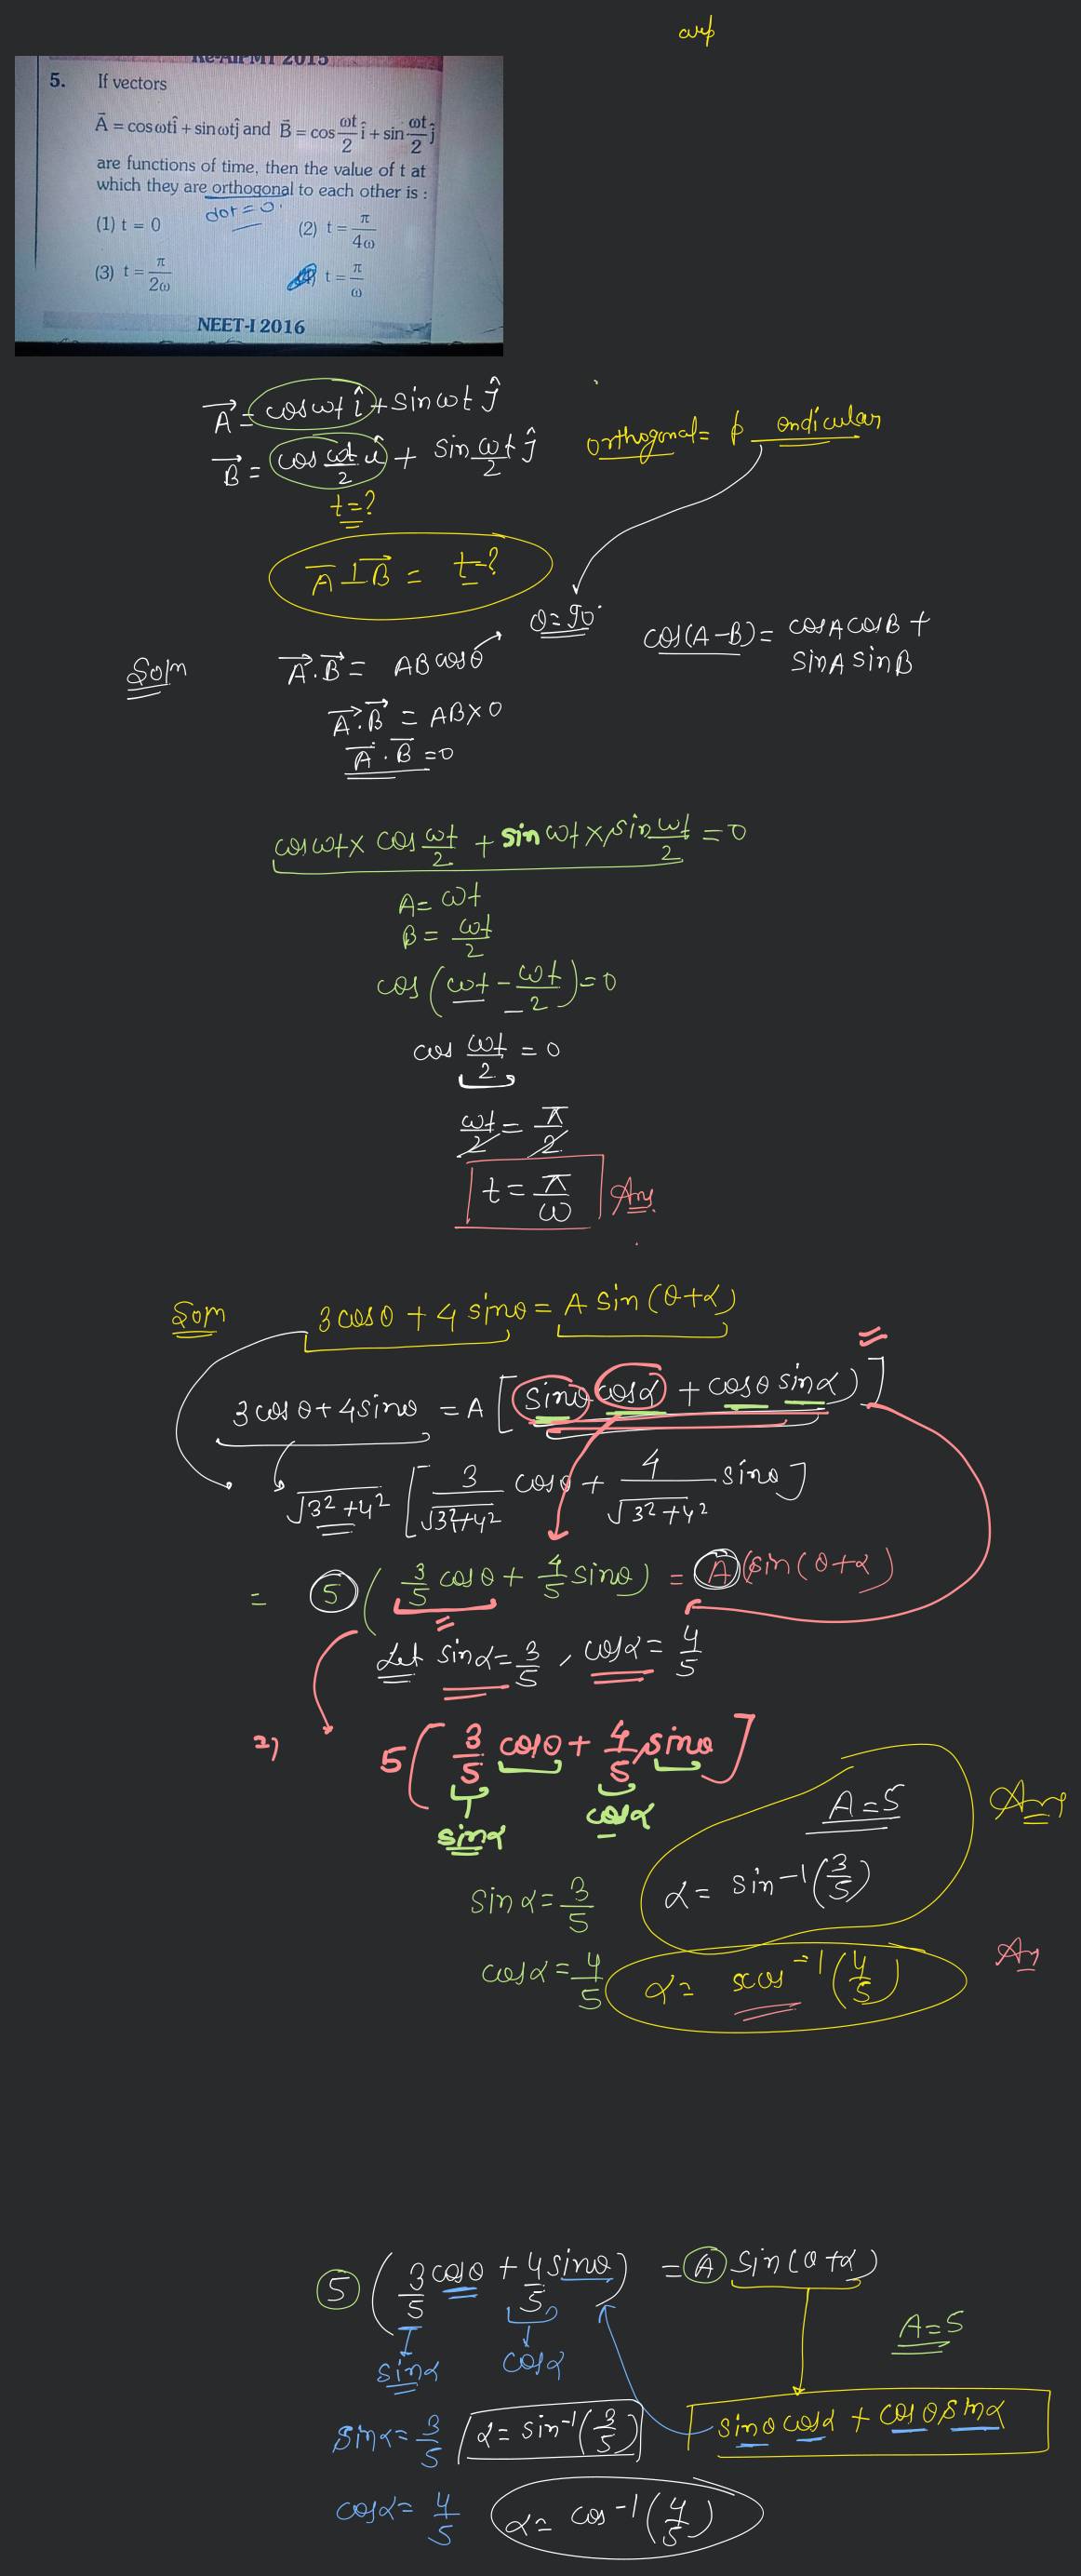 Re-AIPMT 2015
5. If vectors
A⃗ = cosωtî + sinωtĵ and B⃗ = cos ωt/2 î + sin ωt/2 ĵ
are functions of time, then the value of t at
which they are orthogonal to each other is :
dot = 0.
(1) t = 0 (2) t = π/4ω
(3) t = π/2ω t = π/ω
NEET-I 2016
A⃗ = cosωt î + sinωt ĵ
B⃗ = cos ωt/2 î + sin ωt/2 ĵ
orthogonal = p endicular
t=?
A⃗ ⊥ B⃗ = t=?
θ=90°
cos(A-B) = cosAcosB +
sinA sinB
Soln
A⃗.B⃗ = ABcosθ
A⃗.B⃗ = AB×0
A⃗.B⃗ =0
cosωt× cos ωt/2 + sinωt×sin ωt/2 =0
A= ωt
B= ωt/2
cos(ωt - ωt/2)=0
cos ωt/2 =0
ωt/2 = π/2
t= π/ω Ans.
Som 3cosθ + 4 sinθ = A sin(θ+α)
3cosθ+4sinθ = A [sinθ cosα + cosθ sinα)]
√3²+4² [3/√3²+4² cosθ + 4/√3²+4² sinθ]
= 5 (3/5 cosθ + 4/5 sinθ) = A(sin(θ+α)
Let sinα=3/5, cosα=4/5
2) 5[3/5 cosθ + 4/5 sinθ]
sinα cosα
A=5 Ans
sinα=3/5 α= sin⁻¹(3/5)
cosα=4/5 α= cos⁻¹(4/5) An
5 (3/5 cosθ + 4/5 sinθ) = A sin(θ+α)
sinα cosα A=5
sinα=3/5 α=sin⁻¹(3/5) sinθ cosα + cosθ sinα
cosα=4/5 α= cos⁻¹(4/5)